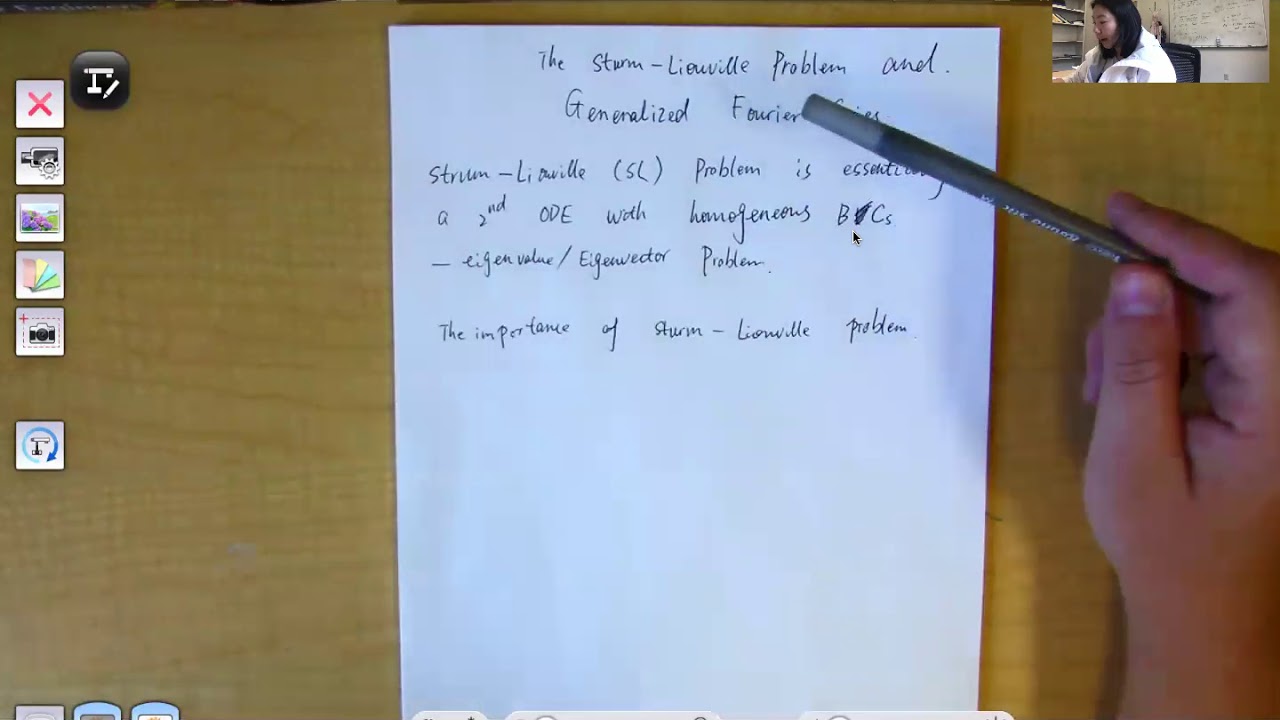 The Sturm-Liouville Problem and.
Generalized Fourier
Strum-Liouville (SL) Problem is
a 2nd ODE with homogeneous BCs
- eigenvalue/Eigenvector Problem.
The importance of Sturm-Liouville problem.